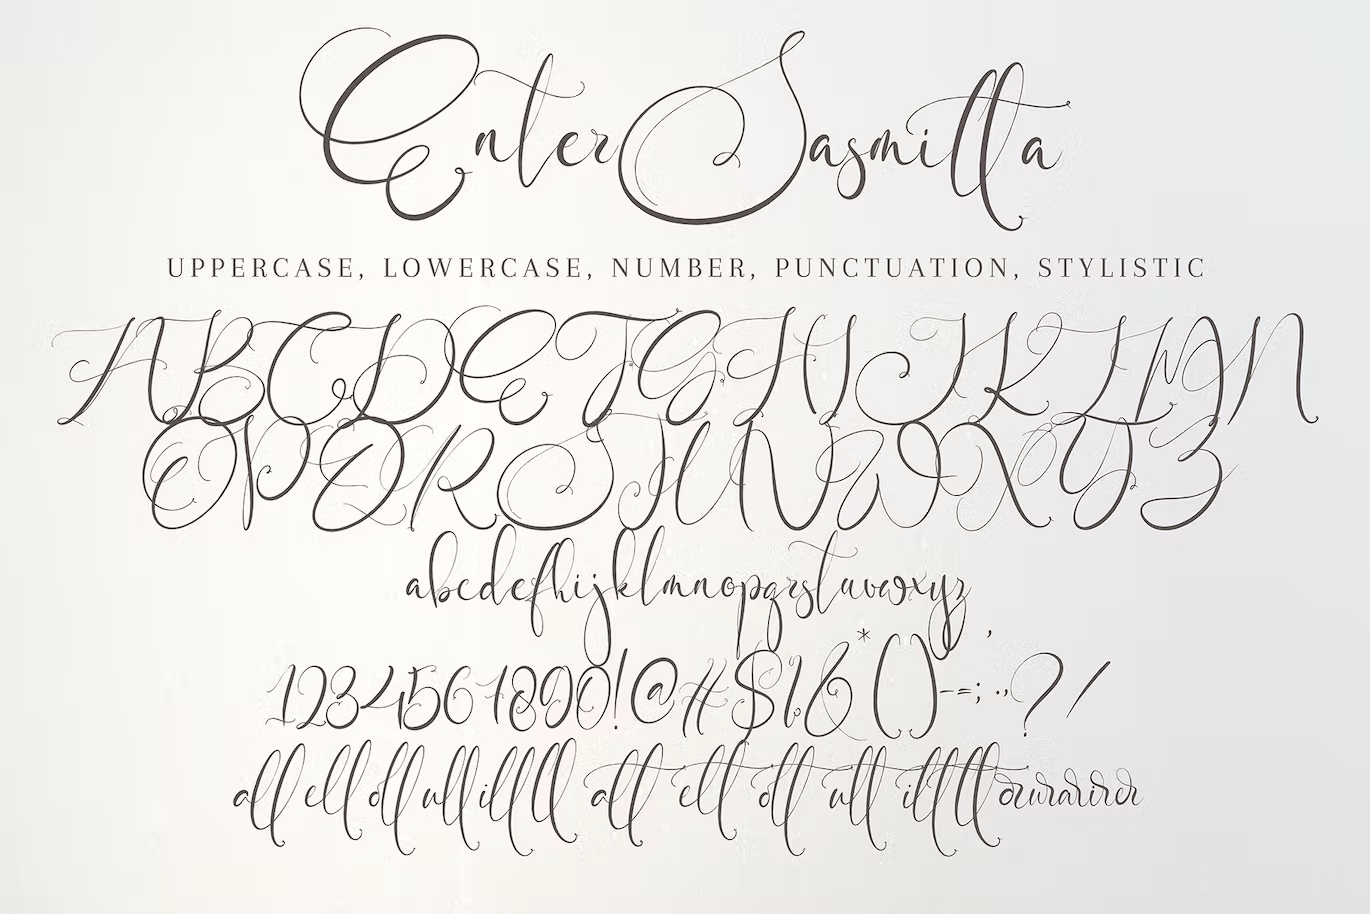 Enter Sasmitta
UPPERCASE, LOWERCASE, NUMBER, PUNCTUATION, STYLISTIC
ABCDEFGHIJKLMN
OPQRSTUVWXYZ
abcdefhijklmnopqrstuvwxyz
1234567890!@#$%&*()-=;:,.'?/
all ell oll ull illll att ett ott utt itttt